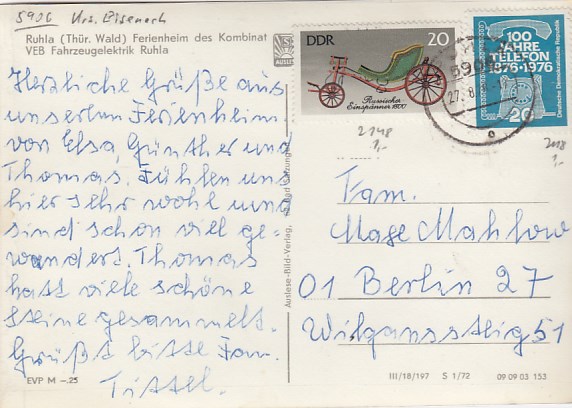 5906 Krs. Eisenach
Ruhla (Thür. Wald) Ferienheim des Kombinat
VEB Fahrzeugelektrik Ruhla
AUSLESE
DDR 20
Russischer
Einspänner 1800
100
JAHRE
TELEFON
1876-1976
20
Deutsche Demokratische Republik
27.8
2148
1,-
1,-
Herzliche Grüße aus
unserem Ferienheim
von Elsa, Günther und
Thomas. Fühlen uns
hier sehr wohl und
sind schon viel ge-
wandert. Thomas
hat viele schöne
Steine gesammelt.
Grüßt bitte Fam.
Tittel.
Auslese-Bild-Verlag,
Fam.
Mage Mahlow
01 Berlin 27
Wilgansssteig 51
EVP M –.25
III/18/197 S 1/72 09 09 03 153